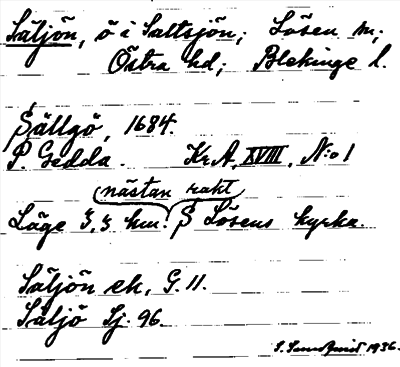 Säljön, ö i Saltsjön; Lösen sn;
Östra hd; Blekinge l.
Sällgö, 1684.
P. Gedda. Kr.A, XVIII, N:o 1
nästan rakt
Läge 3,3 km. S Lösens kyrka.
Säljön ek, G. 11.
Säljö Sj. 96.
S. Sundquist 1936.